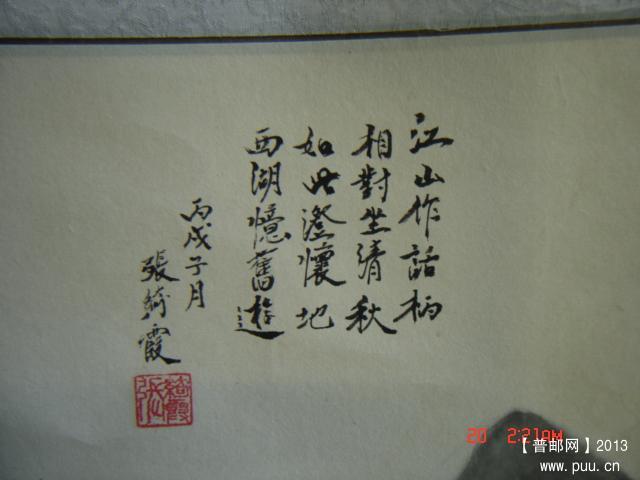 江山作話柄
相對坐清秋
如此澄懷地
西湖憶舊遊
丙戌子月
張綺霞
綺霞張
20 2:21AM
【普邮网】2013
www.puu.cn